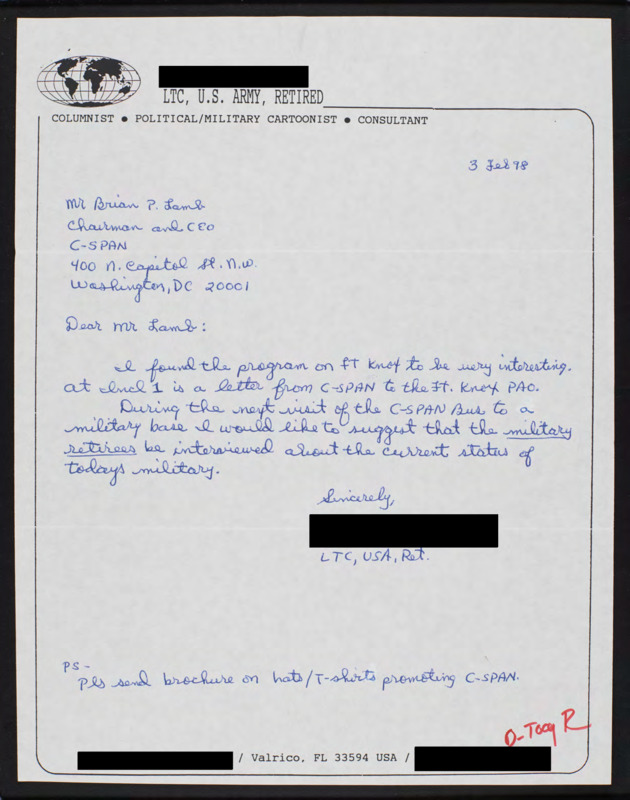 LTC, U.S. ARMY, RETIRED
COLUMNIST ● POLITICAL/MILITARY CARTOONIST ● CONSULTANT
3 Feb 98
Mr Brian P. Lamb
Chairman and CEO
C-SPAN
400 N. Capitol St. N.W.
Washington, DC 20001
Dear Mr Lamb:
I found the program on FT Knox to be very interesting.
At Incl 1 is a letter from C-SPAN to the Ft. Knox PAO.
During the next visit of the C-SPAN Bus to a
military base I would like to suggest that the military
retirees be interviewed about the current status of
todays military.
Sincerely,
LTC, USA, Ret.
PS-
Pls send brochure on hats/T-shirts promoting C-SPAN.
/ Valrico, FL 33594 USA /